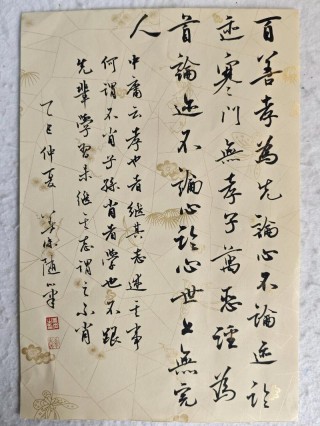 百善孝為先論心不論迹論
迹寒門無孝子萬惡淫為
首論迹不論心論心世上無完
人
中庸云孝也者继其志述其事
何谓不肖子孫肖者學也不跟
先輩學習未继其志謂之不肖
乙巳仲夏 随筆